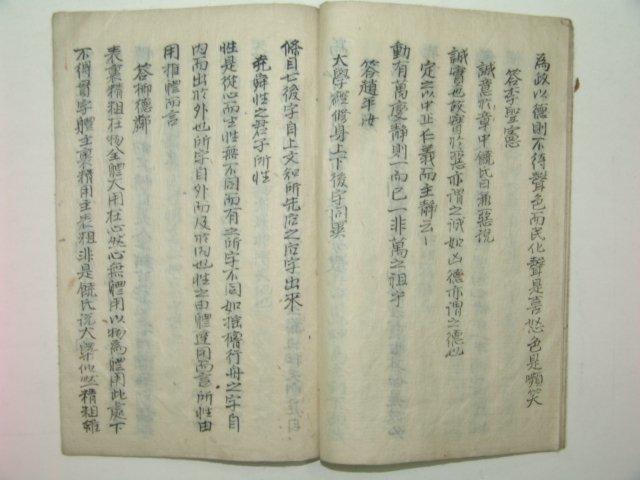 為政以德則不得聲色而民化聲是喜怒色是嚬笑
答李聖憲
誠意於章中饒氏曰兼惡說
誠實也故實於惡亦謂之誠如凶德亦謂之德也
定之以中正仁義而主靜云云
動有萬慶靜則一而已一非萬之祖乎
答趙平汝
大學經修身上下後字同異
條目七後字自上文知所先后之后字出來
堯舜性之君子所性
性是從心而生性無不同而有之所字不同如推行舟之字自
內而出於外也所字自外而及於內也性之由體達用而言所性由
用推體而言
答柳德鄰
表裏精粗在物全體大用在心然心無體用以物為體用此處下
不得貫字體主裏精用主表粗非是饒氏說大學似然精粗雖